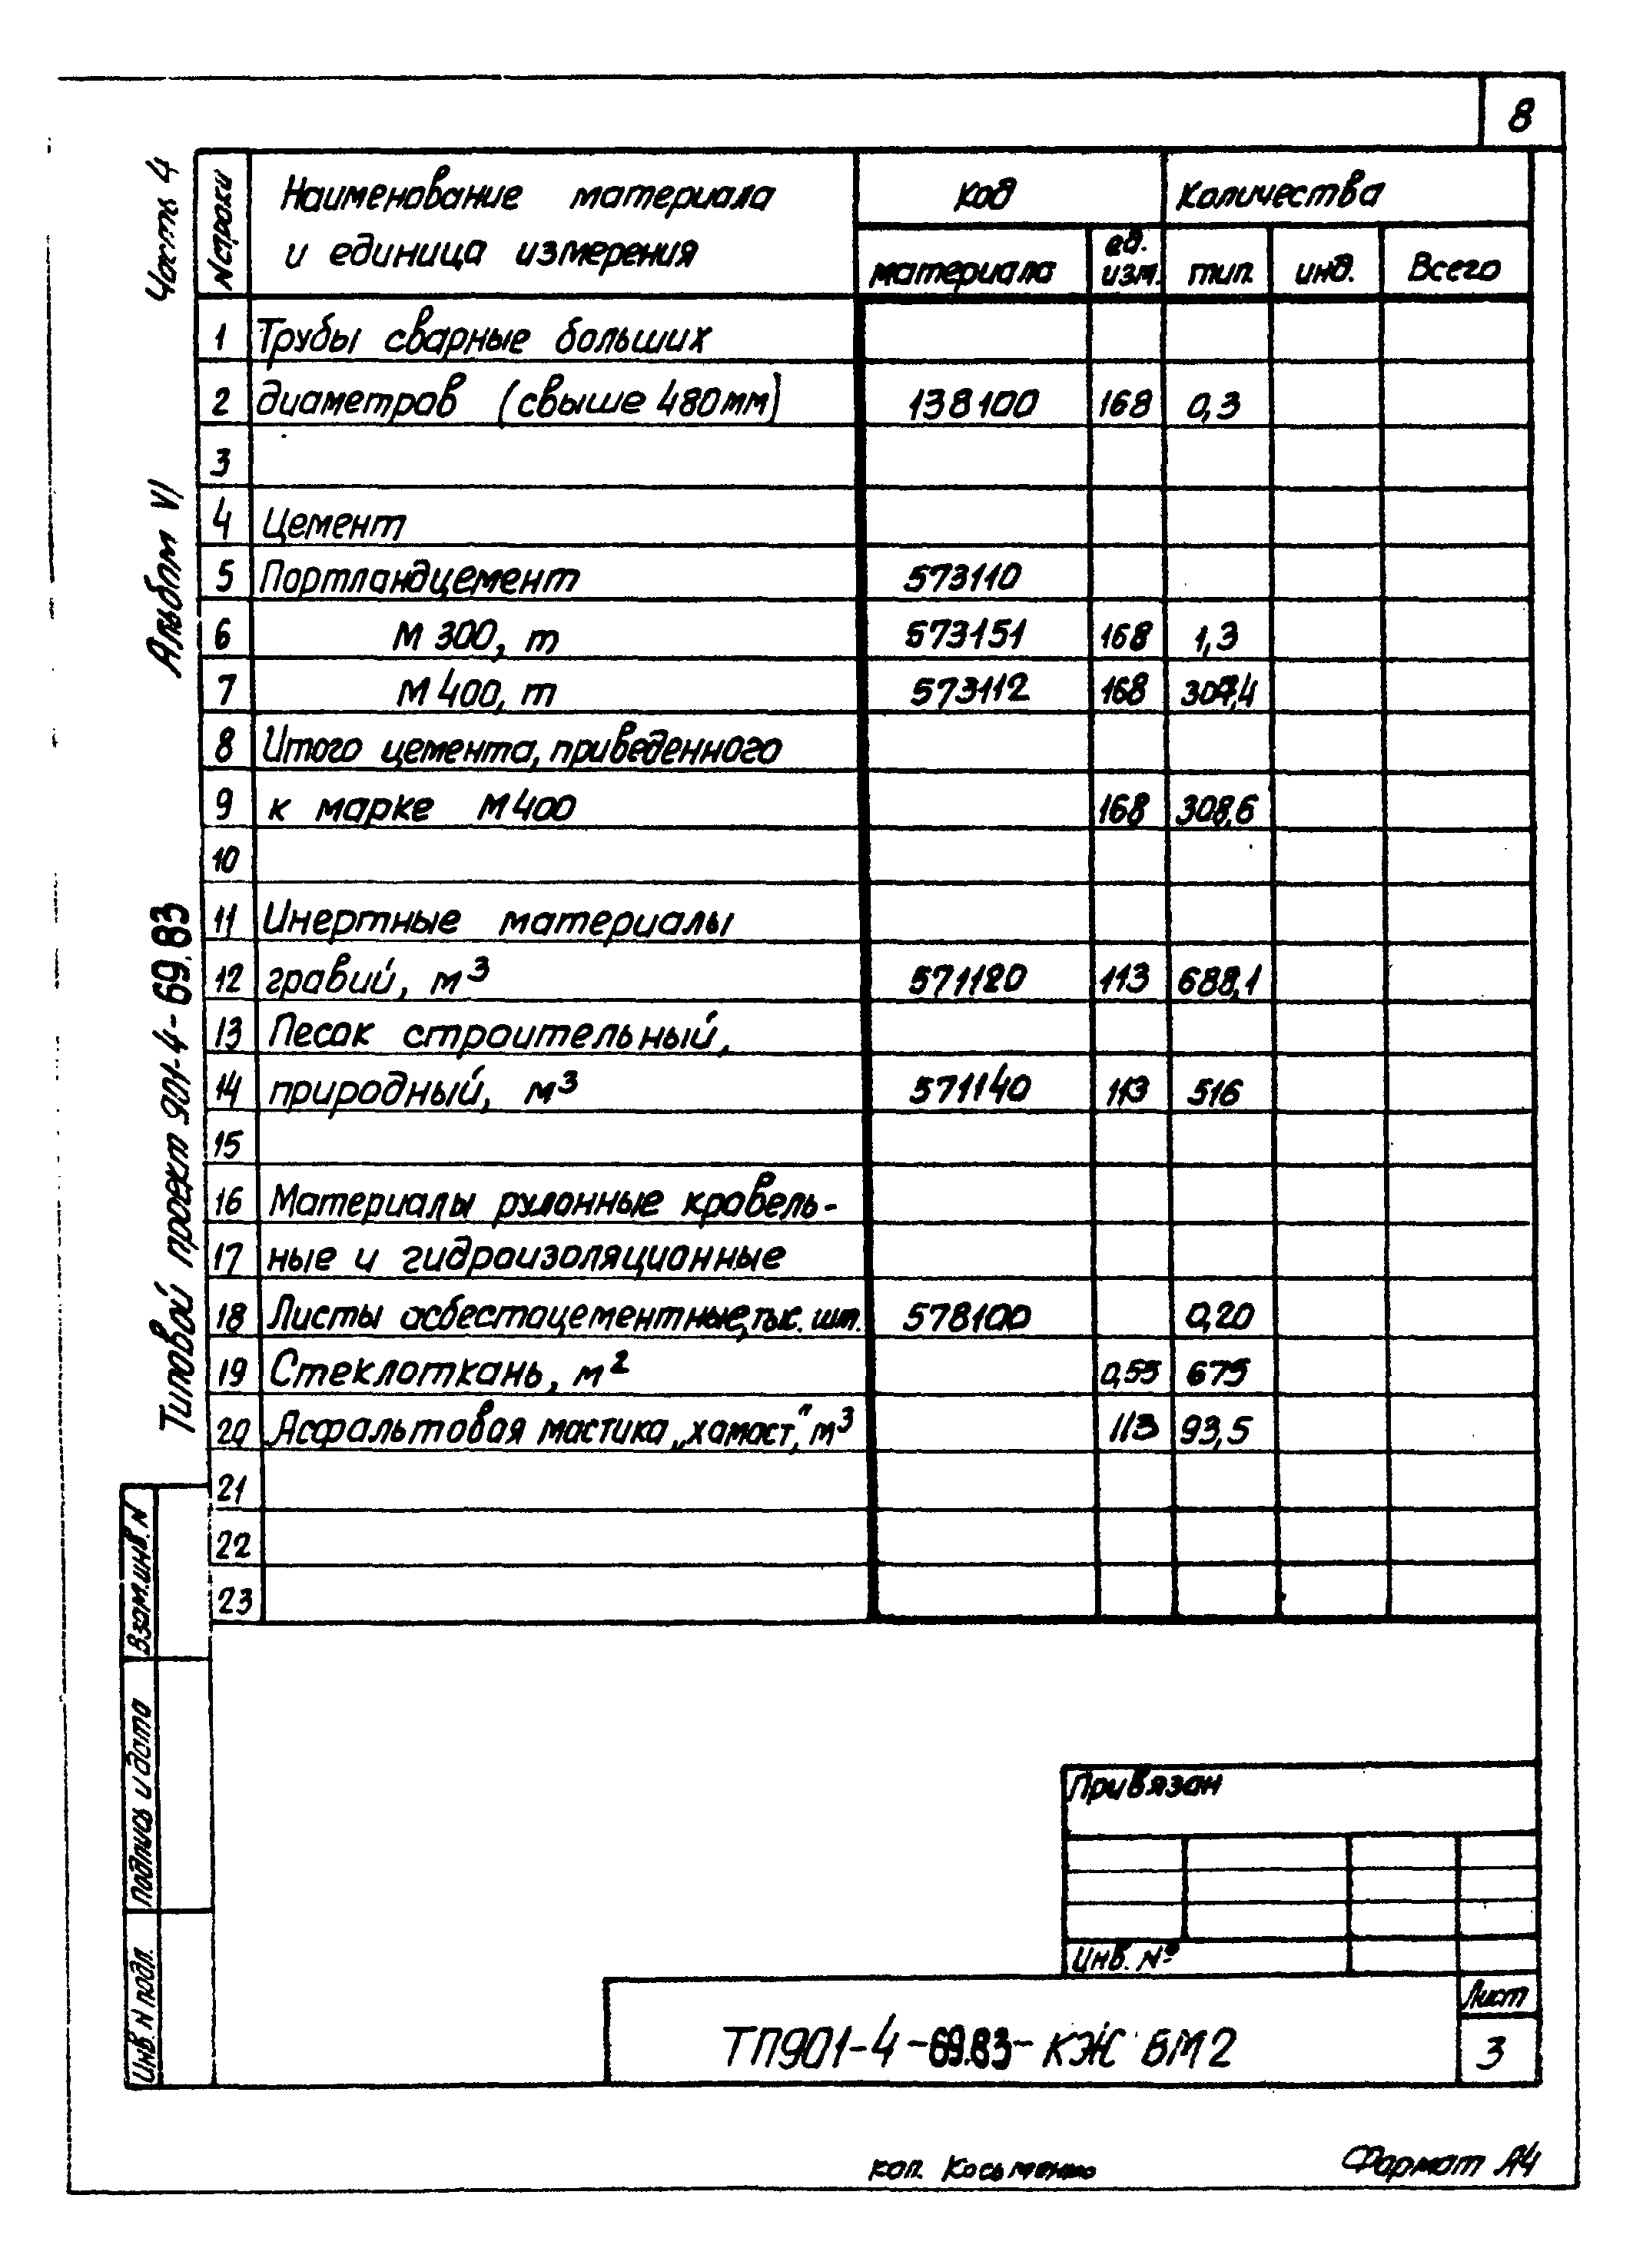 8
Часть 4
Альбом VI
Типовой проект 901-4-69.83
N строки
Наименование материала
и единица измерения
Код
Количества
материала
ед. изм.
тип.
инд.
Всего
1 Трубы сварные больших
2 диаметров (свыше 480мм) 138100 168 0,3
3
4 Цемент
5 Портландцемент 573110
6 М 300, т 573151 168 1,3
7 М 400, т 573112 168 307,4
8 Итого цемента, приведенного
9 к марке М400 168 308,6
10
11 Инертные материалы
12 гравий, м3 571120 113 688,1
13 Песок строительный,
14 природный, м3 571140 113 516
15
16 Материалы рулонные кровель-
17 ные и гидроизоляционные
18 Листы асбестоцементные, тыс. шт. 578100 0,20
19 Стеклоткань, м2 0,55 675
20 Асфальтовая мастика „хамаст", м3 113 93,5
21
22
23
Взам. инв. N
Подпись и дата
Инв. N подл.
Привязан
Инв. №
ТП901-4-69.83-КЖ ВМ2
Лист
3
коп.
Формат А4